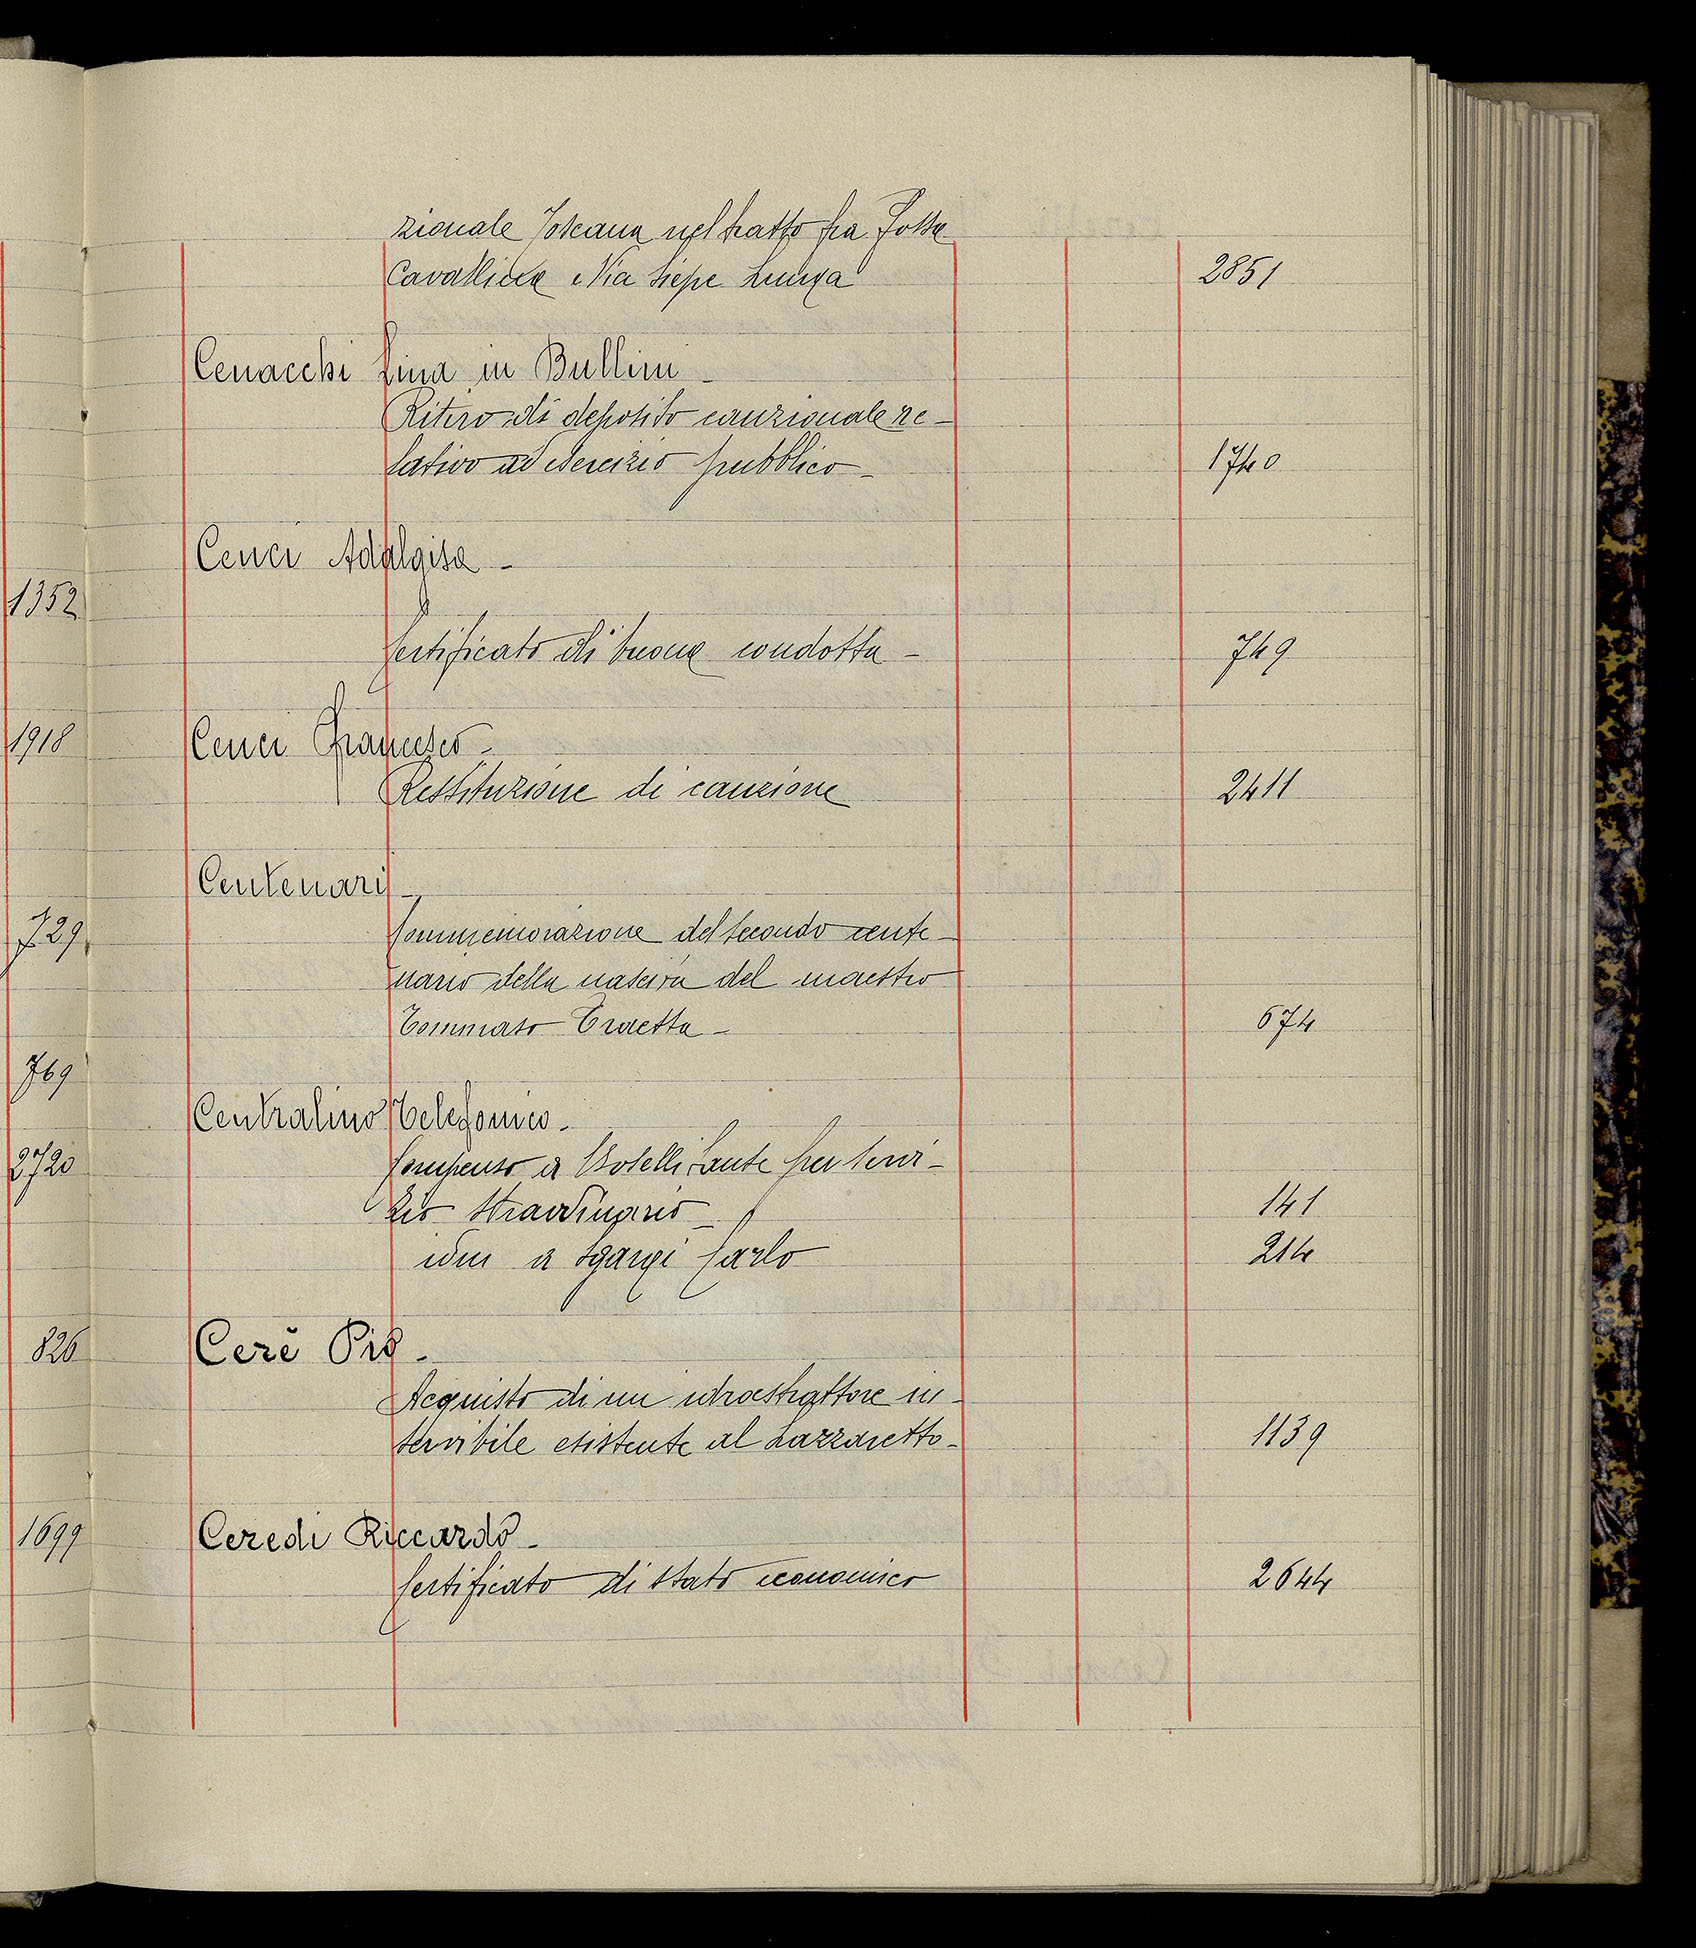 zionale Toscana nel tratto fra Fossa
Cavallina e Via Siepe Lunga 2851
Cenacchi Lina in Bullini -
Ritiro di deposito cauzionale re-
lativo ad esercizio pubblico - 1740
Cenci Adalgisa -
1352
Certificato di buona condotta - 749
1918 Cenci Francesco -
Restituzione di cauzione 2411
Centenari -
729 Commemorazione del secondo cente-
nario della nascita del maestro
Tommaso Traetta - 674
769
Centralino Telefonico -
2720 Compenso a Boselli Sante per servi-
zio straordinario - 141
idem a Sgargi Carlo 214
826 Cerè Pio -
Acquisto di un idroestrattore in-
servibile esistente al Lazzaretto - 1139
1699 Ceredi Riccardo -
Certificato di stato economico 2644